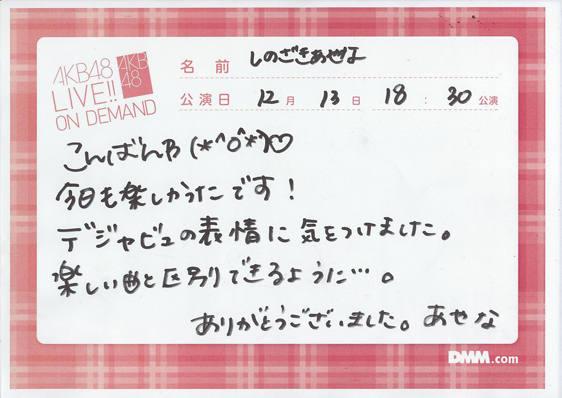 AKB48
LIVE!!
ON DEMAND
AKB
48
名前 しのざきあやな
公演日 12月 13日 18:30公演
こんばんわ(*^o^*)♡
今日も楽しかったです!
デジャビュの表情に気をつけました。
楽しい曲と区別できるように…。
ありがとうございました。あやな
DMM.com